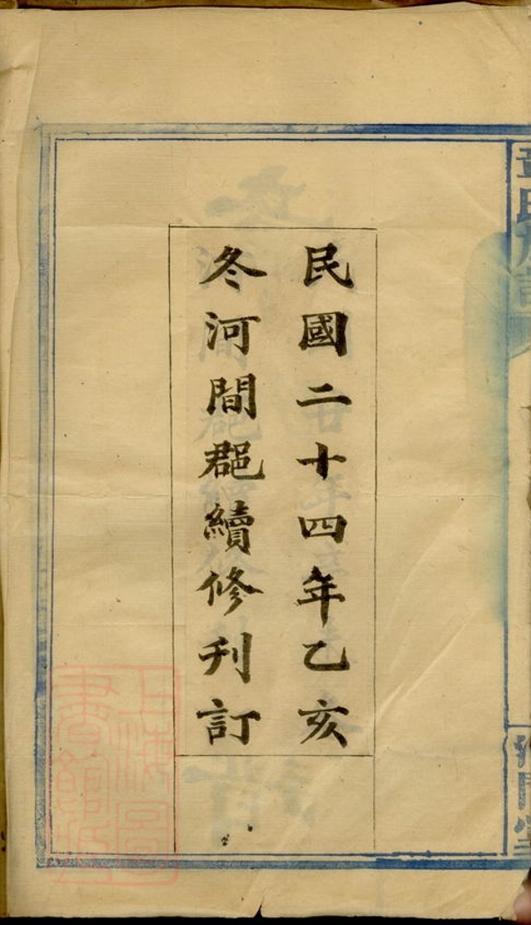 民國二十四年乙亥
冬河間郡續修刋訂